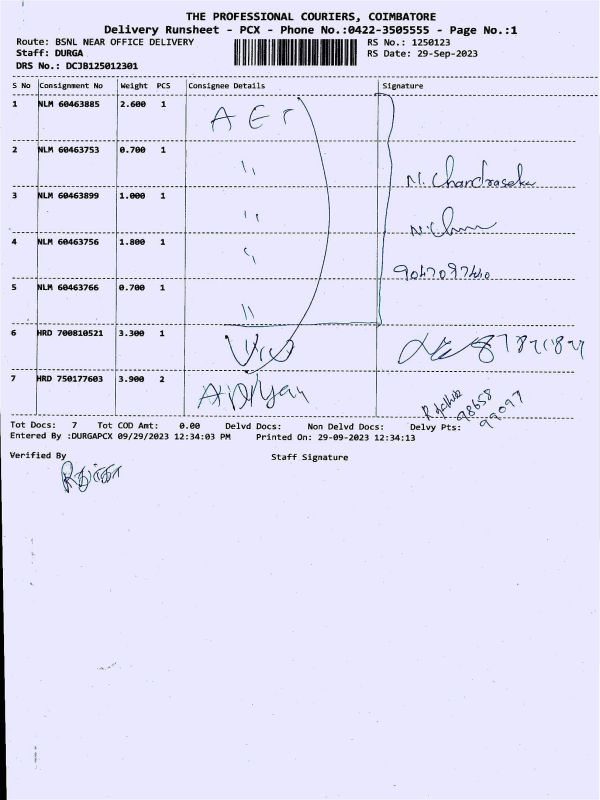 THE PROFESSIONAL COURIERS, COIMBATORE
Delivery Runsheet - PCX - Phone No.:0422-3505555 - Page No.:1
Route: BSNL NEAR OFFICE DELIVERY RS No.: 1250123
Staff: DURGA RS Date: 29-Sep-2023
DRS No.: DCJB125012301
S No Consignment No Weight PCS Consignee Details Signature
1 NLM 60463885 2.600 1 A E
2 NLM 60463753 0.700 1 " N. Chandrasekar
3 NLM 60463899 1.000 1 "
4 NLM 60463756 1.800 1 "
5 NLM 60463766 0.700 1 "
6 HRD 700810521 3.300 1
7 HRD 750177603 3.900 2
98658
99097
Tot Docs: 7 Tot COD Amt: 0.00 Delvd Docs: Non Delvd Docs: Delvy Pts:
Entered By :DURGAPCX 09/29/2023 12:34:03 PM Printed On: 29-09-2023 12:34:13
Verified By Staff Signature